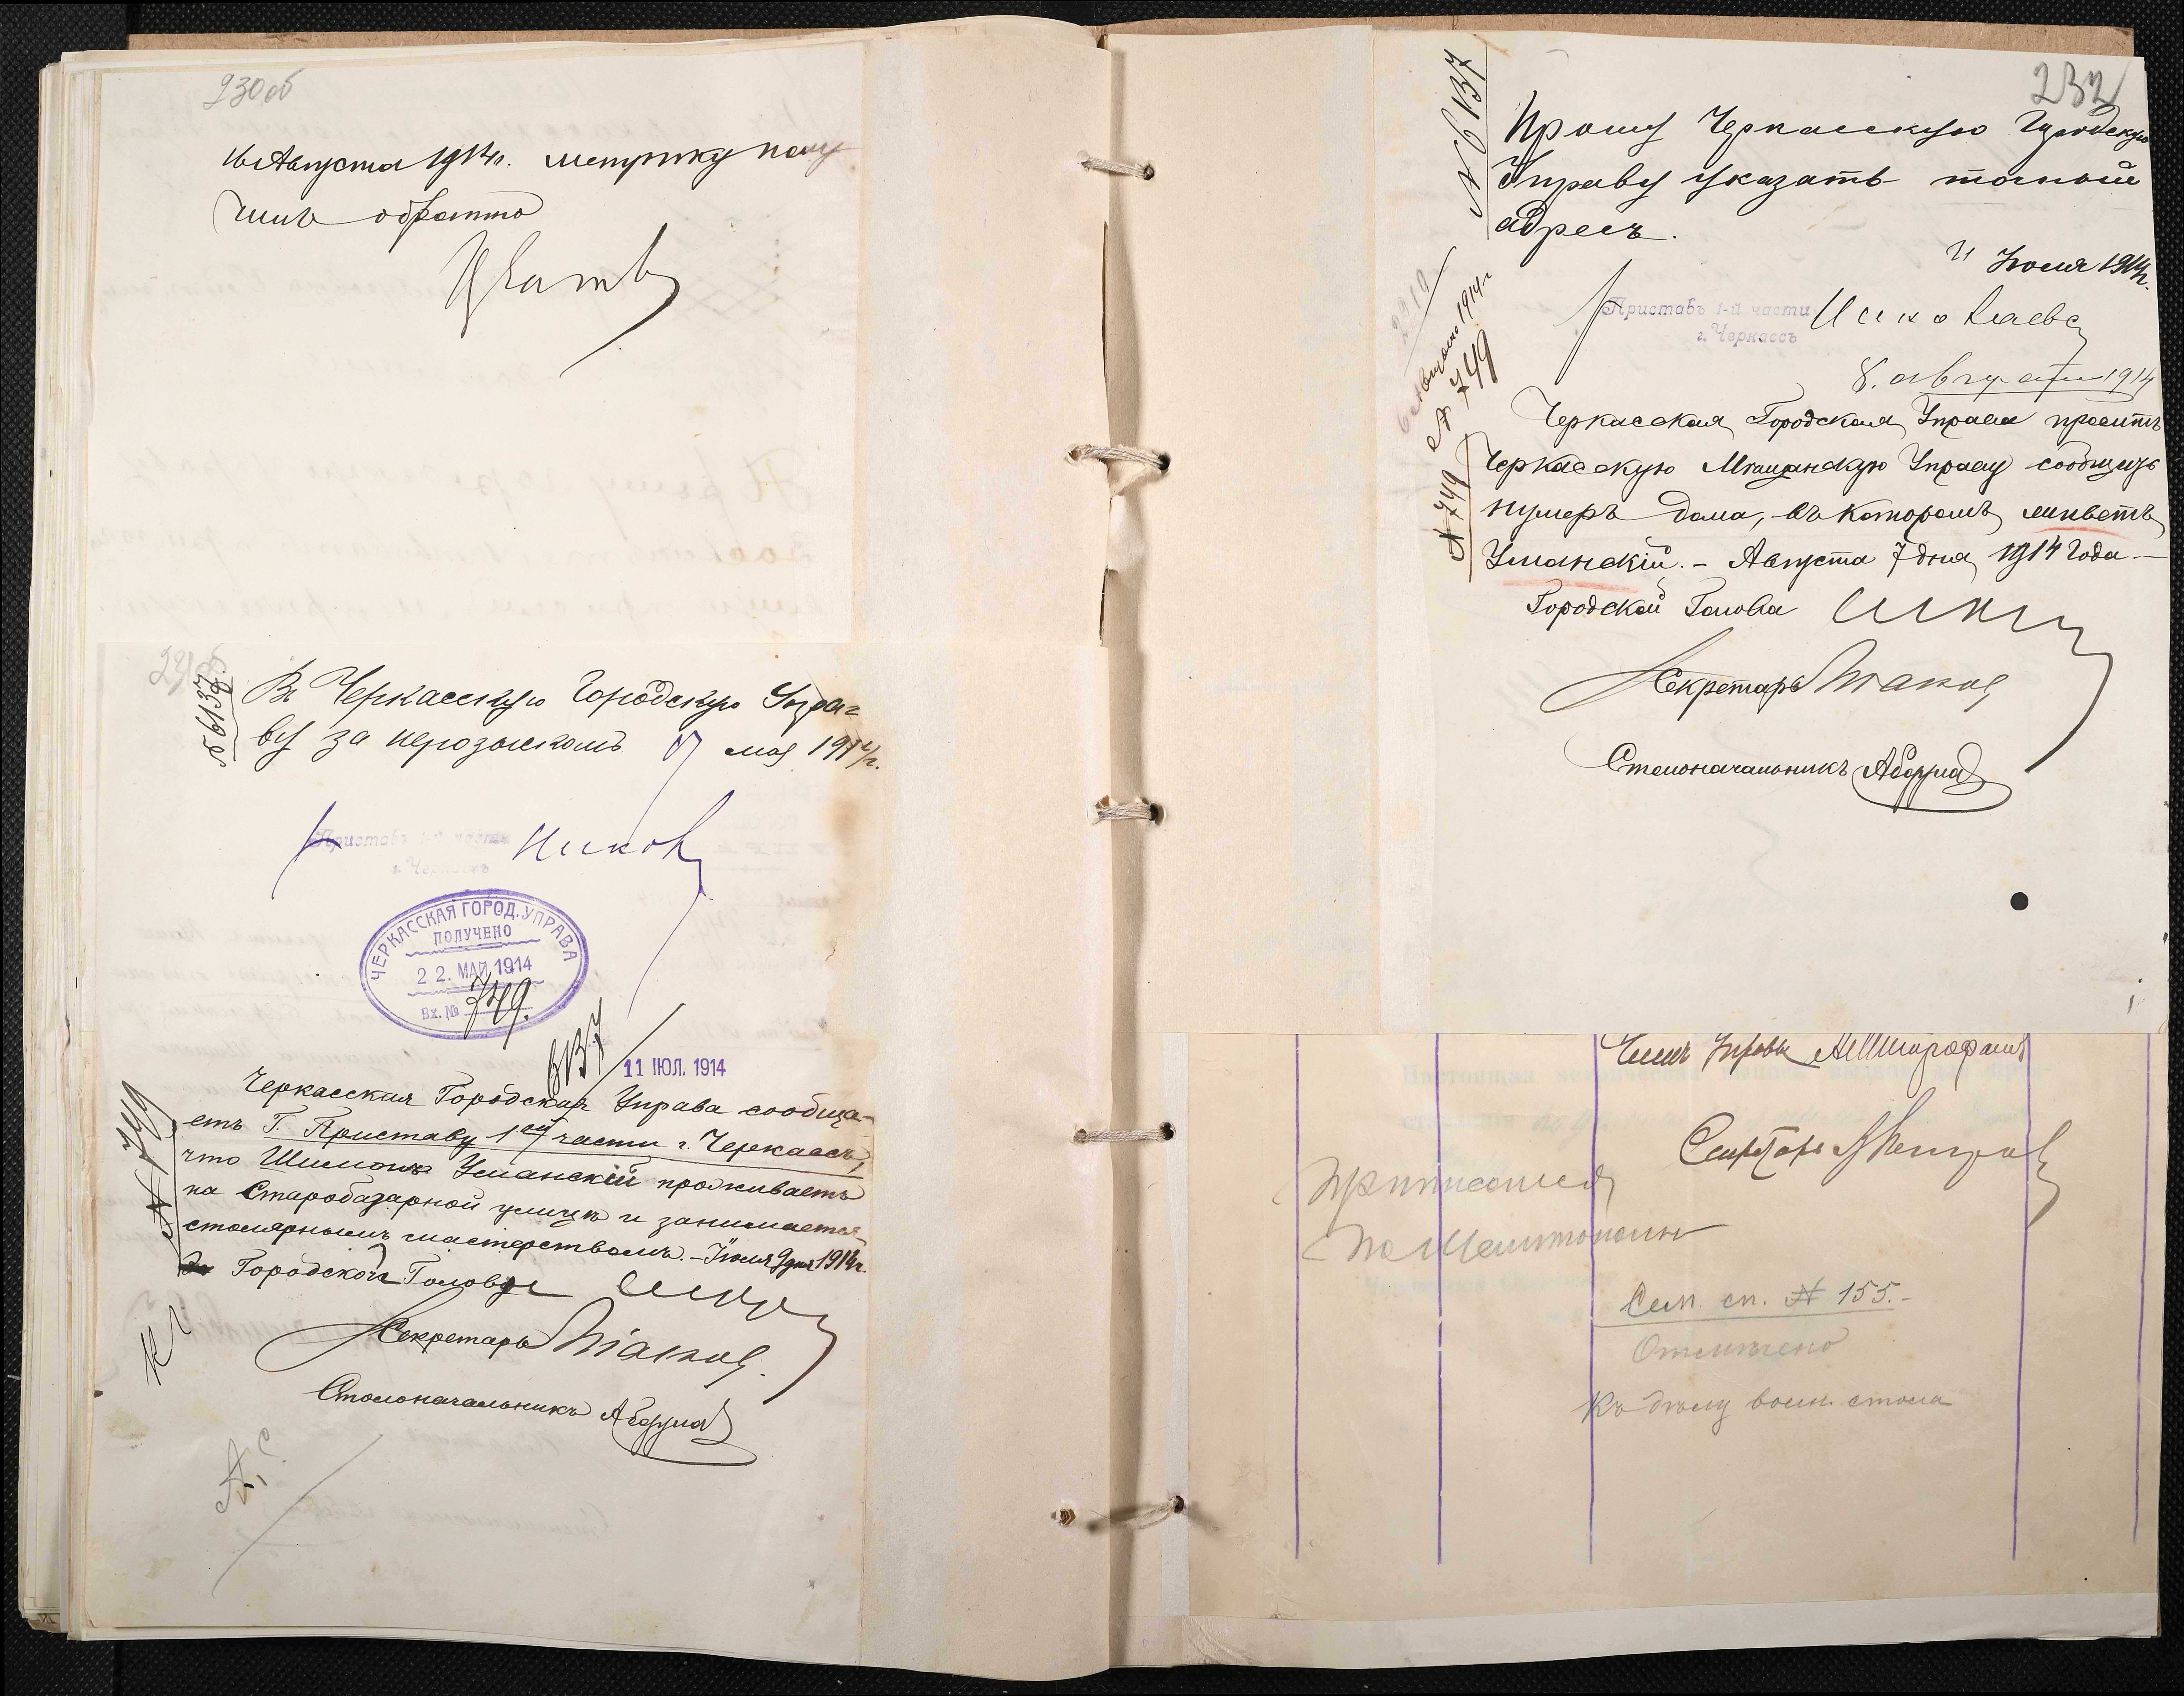 230об
16 Августа 1914 г. метрику полу
чилъ обратно
№ 6137
Въ Черкасскую Городскую Упра-
ву за нерозыскомъ 17 мая 1914 г.
Приставъ 1-й части
г. Черкассъ
ЧЕРКАССКАЯ ГОРОД. УПРАВА
ПОЛУЧЕНО
22. МАЙ 1914
Вх. № 749.
6137
11 ІЮЛ. 1914
№ 749
Черкасская Городская Управа сообща-
етъ Г. Приставу 1ой части г. Черкассъ,
что Шимонъ Уманскій проживаетъ
на Старобазарной улицѣ и занимается
столярнымъ мастерствомъ. – Іюля 9 дня 1914 г.
Городской Голова
Секретарь
Столоначальникъ
232
№ 6137
Прошу Черкасскую Городскую
Управу указать точный
адресъ.
21 Іюля 1914 г.
Приставъ 1-й части
г. Черкассъ
Николаевъ
8. августа 1914
6 Августа 1914 г.
№ 749
№ 749
Черкасская Городская Управа проситъ
Черкасскую Мѣщанскую Управу сообщить
нумеръ дома, въ которомъ живетъ
Уманскій. – Августа 7 дня 1914 года –
Городской Голова
Секретарь
Столоначальникъ
Членъ Управы
Секретарь
Приписанъ
Сем. сп. № 155.–
Отмѣчено
Къ дѣлу воин. стола